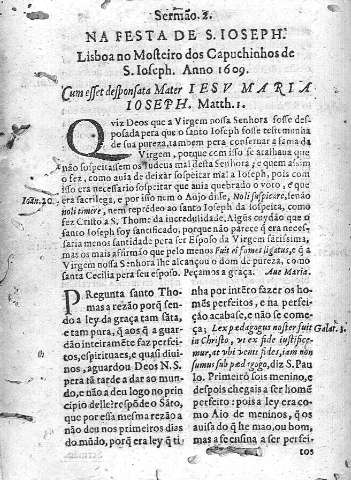 Sermão. 2.
NA FESTA DE S. IOSEPH.
Lisboa no Mosteiro dos Capuchinhos de
S. Ioseph. Anno 1609.
Cum esset desponsata Mater IESV MARIA
IOSEPH. Matth. 1.
Qviz Deos que a Virgem nossa Senhora fosse des-
posada pera que o santo Ioseph fosse testemunha
de sua pureza, tambem pera conseruar a fama da
Virgem, porque com isso se atalhaua que
não sospeitassem os Iudeus mal desta Senhora; e quem assim
o fez, como auia de deixar sospeitar mal a Ioseph, pois com
isso era necessario sospeitar que auia quebrado o voto, e que
era sacrilega, e por isso nem o Anjo disse, Noli suspicare, senão
Ioan. 20.
noli timere, nem reprẽdeo ao santo Ioseph da sospeita, como
fez Cristo a S. Thome da incredulidade. Algũs cuydão que o
santo Ioseph foy santificado, porque não parece q̃ era neces-
saria menos santidade pera ser Esposo da Virgem santissima,
mas os mais affirmão que pelo menos Fuit ei fomes ligatus, e q̃ a
Virgem nossa Senhora lhe alcançou o dom de pureza, como
santa Cecilia pera seu esposo. Peçamos a graça. Aue Maria.
PRegunta santo Tho-
mas a rezão porq̃ sen-
do a ley da graça tam sãta,
e tam pura, q̃ aos q̃ a guar-
dão inteiramẽte faz perfei-
tos, espirituaes, e quasi diui-
nos, aguardou Deos N. S.
pera tã tarde a dar ao mun-
do, e não a deu logo no prin-
cipio delle? respõde o Sãto,
que por essa mesma rezão a
não deu nos primeiros dias
do mũdo, porq̃ era ley q̃ ti-
nha por intẽto fazer os ho-
mẽs perfeitos, e na perfei-
ção acabase, e não se come-
ça; Lex pædagogus noster fuit
Galat. 3.
in Christo, vt ex fide iustifice-
mur, at vbi venit fides, iam non
sumus sub pædagogo, diz S. Pau
lo. Primeiro sois menino, e
despois chegais a ser homẽ
perfeito: pois a ley era co-
mo Aio de meninos, q̃ os
auisa do q̃ he mao, ou bom,
mas a se ensina a ser perfei-
105